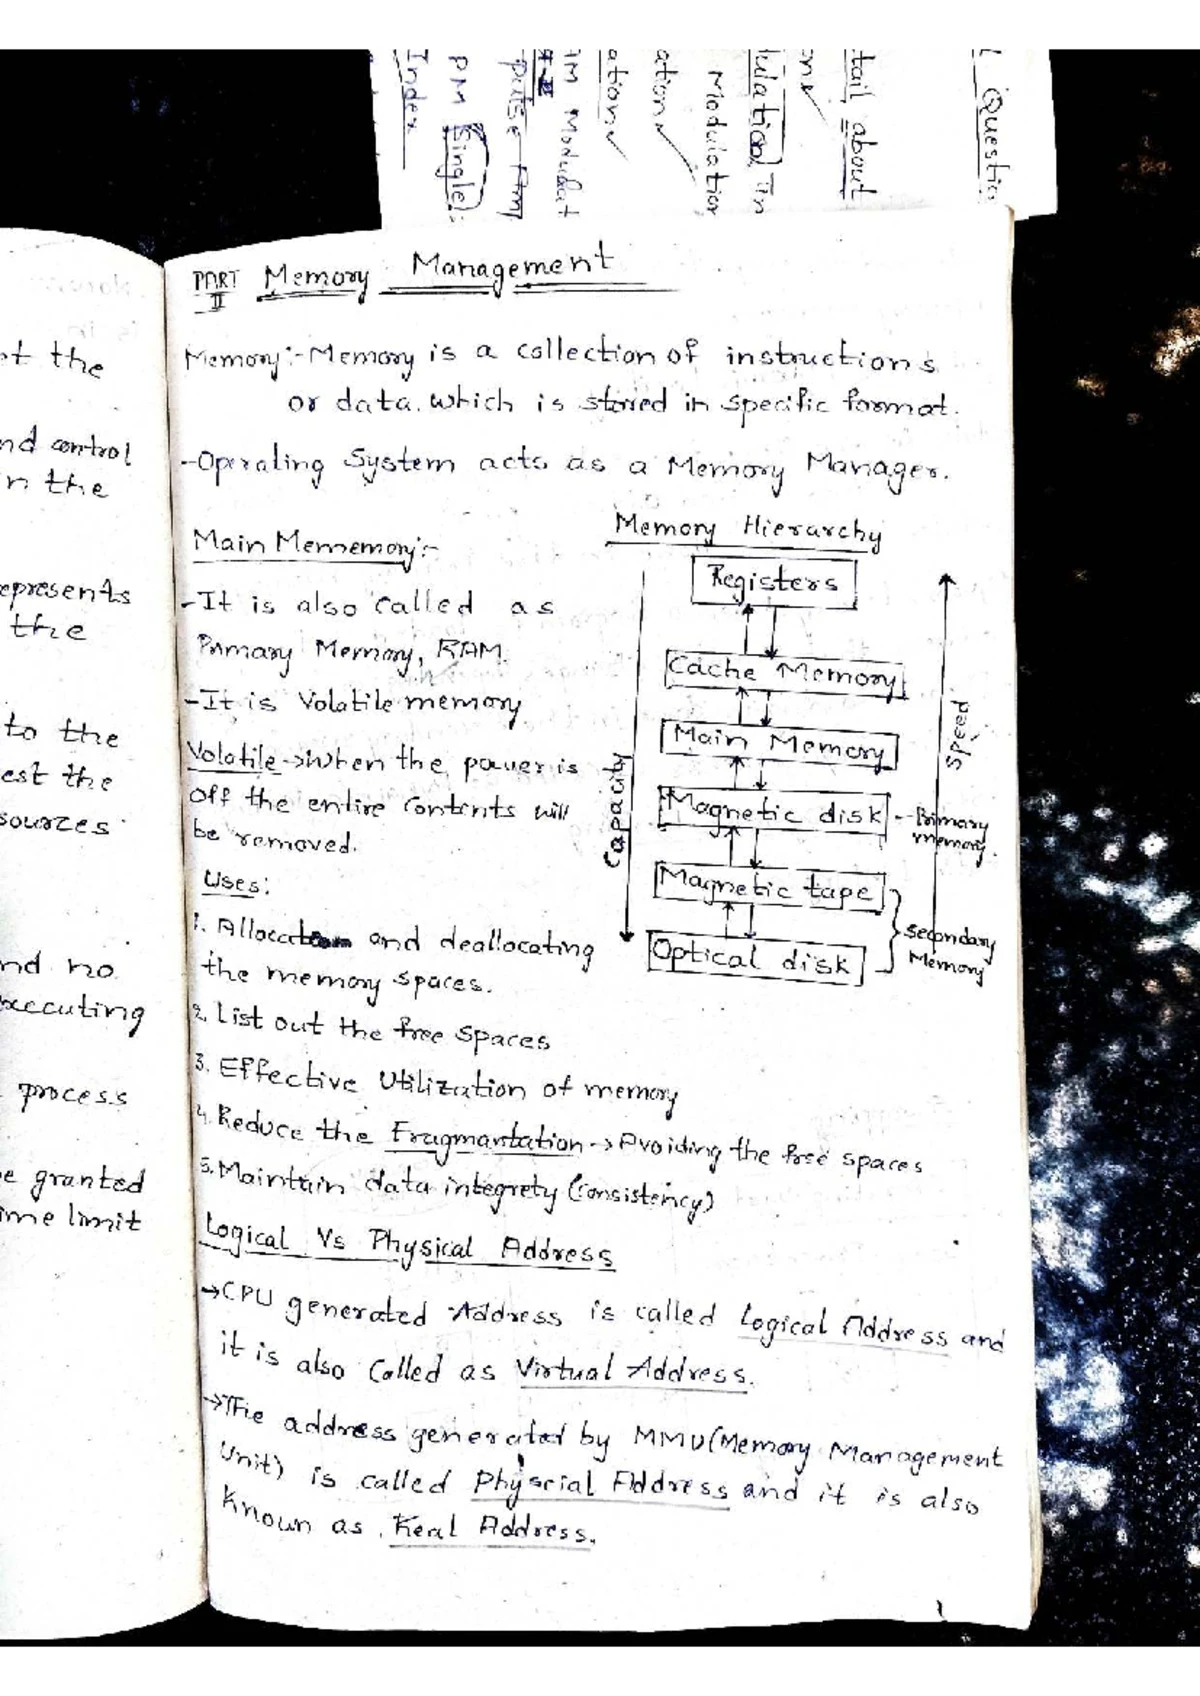 Questio
tail about
on
ulation in
Modulation
ation
ation
AM Modulat
pulse Am
PM Single
Index
ot the
nd control
in the
epresents
the
to the
est the
sources
nd no
executing
process
e granted
ime limit
PART II Memory Management
Memory:- Memory is a collection of instructions
or data. which is stored in specific format.
-Operating System acts as a Memory Manager.
Main Mememory:-
-It is also called as
Primary Memory, RAM.
-It is Volatile memory
Volatile→When the power is
off the entire contents will
be removed.
Uses:
1. Allocation and deallocating
the memory spaces.
2. List out the free spaces
3. Effective Utilization of memory
4. Reduce the Fragmantation→Avoiding the free spaces
5. Maintain data integrety (consistency)
Memory Hierarchy
Registers
Cache Memory
Main Memory
Magnetic disk -- Primary
memory.
Magnetic tape
Optical disk
Secondary
Memory
Capacity
Speed
Logical Vs Physical Address
→CPU generated Address is called Logical Address and
it is also Called as Virtual Address.
→The address generated by MMU(Memory Management
Unit) is called Physcial Address and it is also
Known as Real Address.